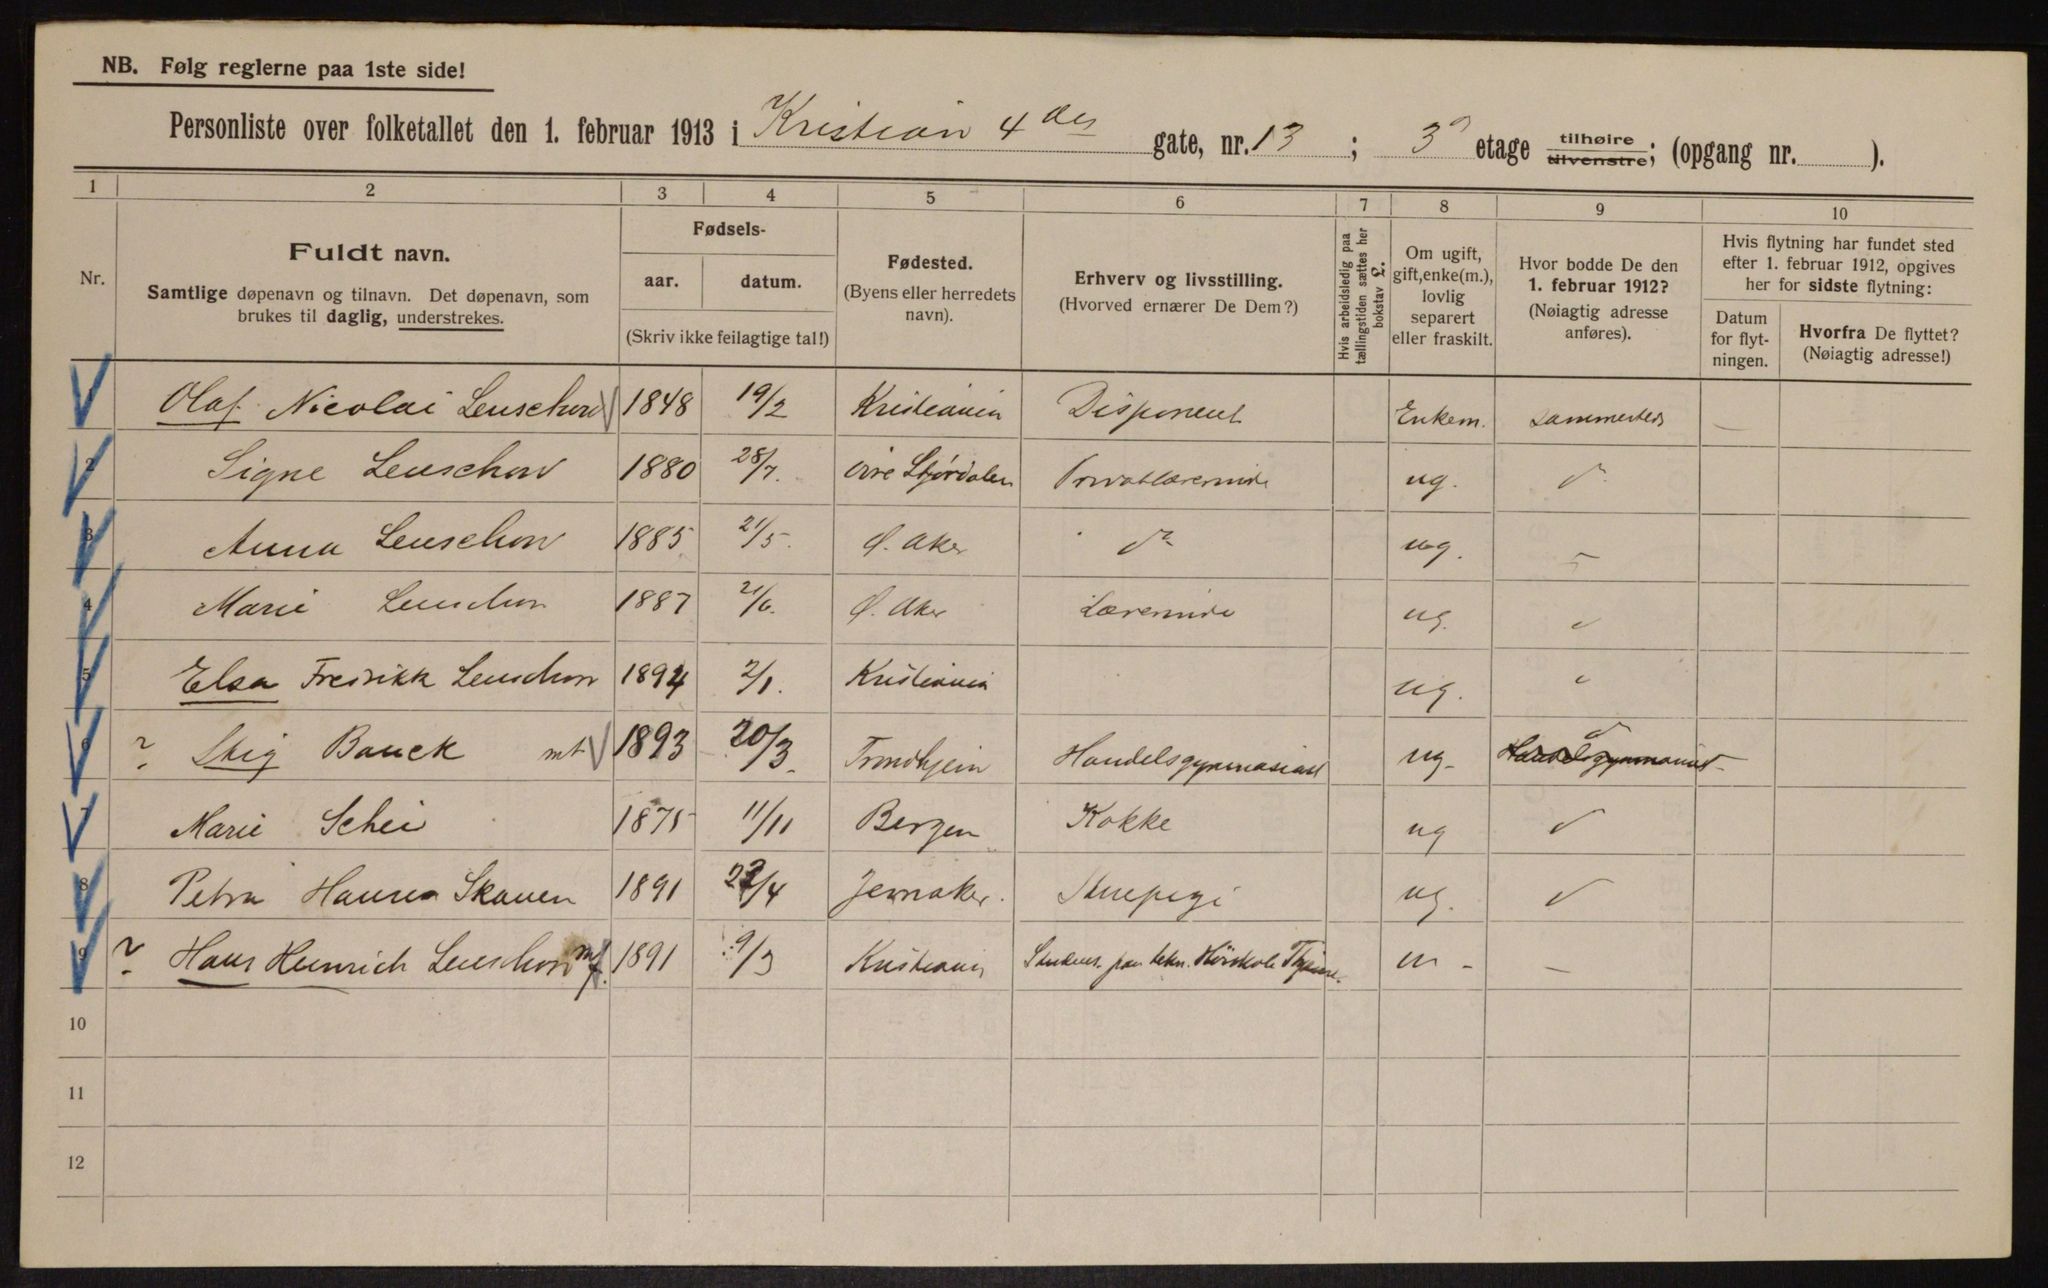 NB. Følg reglerne paa 1ste side!
Personliste over folketallet den 1. februar 1913 i Kristian 4des gate, nr. 13 ; 3 etage tilhøire tilvenstre; (opgang nr. ).
1 2 3 4 5 6 7 8 9 10
Nr.
Fuldt navn.
Samtlige døpenavn og tilnavn. Det døpenavn, som
brukes til daglig, understrekes.
Fødsels-
aar. datum.
(Skriv ikke feilagtige tal!)
Fødested.
(Byens eller herredets
navn).
Erhverv og livsstilling.
(Hvorved ernærer De Dem?)
Hvis arbeidsledig paa
tællingstiden sættes her
bokstav L.
Om ugift,
gift, enke(m.),
lovlig
separert
eller fraskilt.
Hvor bodde De den
1. februar 1912?
(Nøiagtig adresse
anføres).
Hvis flytning har fundet sted
efter 1. februar 1912, opgives
her for sidste flytning:
Datum
for flyt-
ningen.
Hvorfra De flyttet?
(Nøiagtig adresse!)
Olaf Nicolai Leuschow 1848 19/2 Kristiania Disponent Enkem. sammesteds
2 Signe Leuschow 1880 28/7. Stjørdalen Privatlærerinde ug.
3 Anna Leuschow 1885 21/5. Ø. Aker do ug.
4 Marie Leuschow 1887 2/6. Ø. Aker Lærerinde ug.
5 Elsa Fredrikk Leuschow 1894 2/1. Kristiania ug.
6 ? Stig Bauck mt 1893 20/3 Trondhjem Handelsgymnasiast ug.
7 Marie Schei 1875 11/11 Bergen Kokke ug
8 Petra Skauen 1891 23/4 Jevnaker. Stuepige ug.
9 ? Hans Heinrich Leuschow mf. 1891 9/3 Kristiania Student. paa tekn. Høiskole Thjem. -
10
11
12